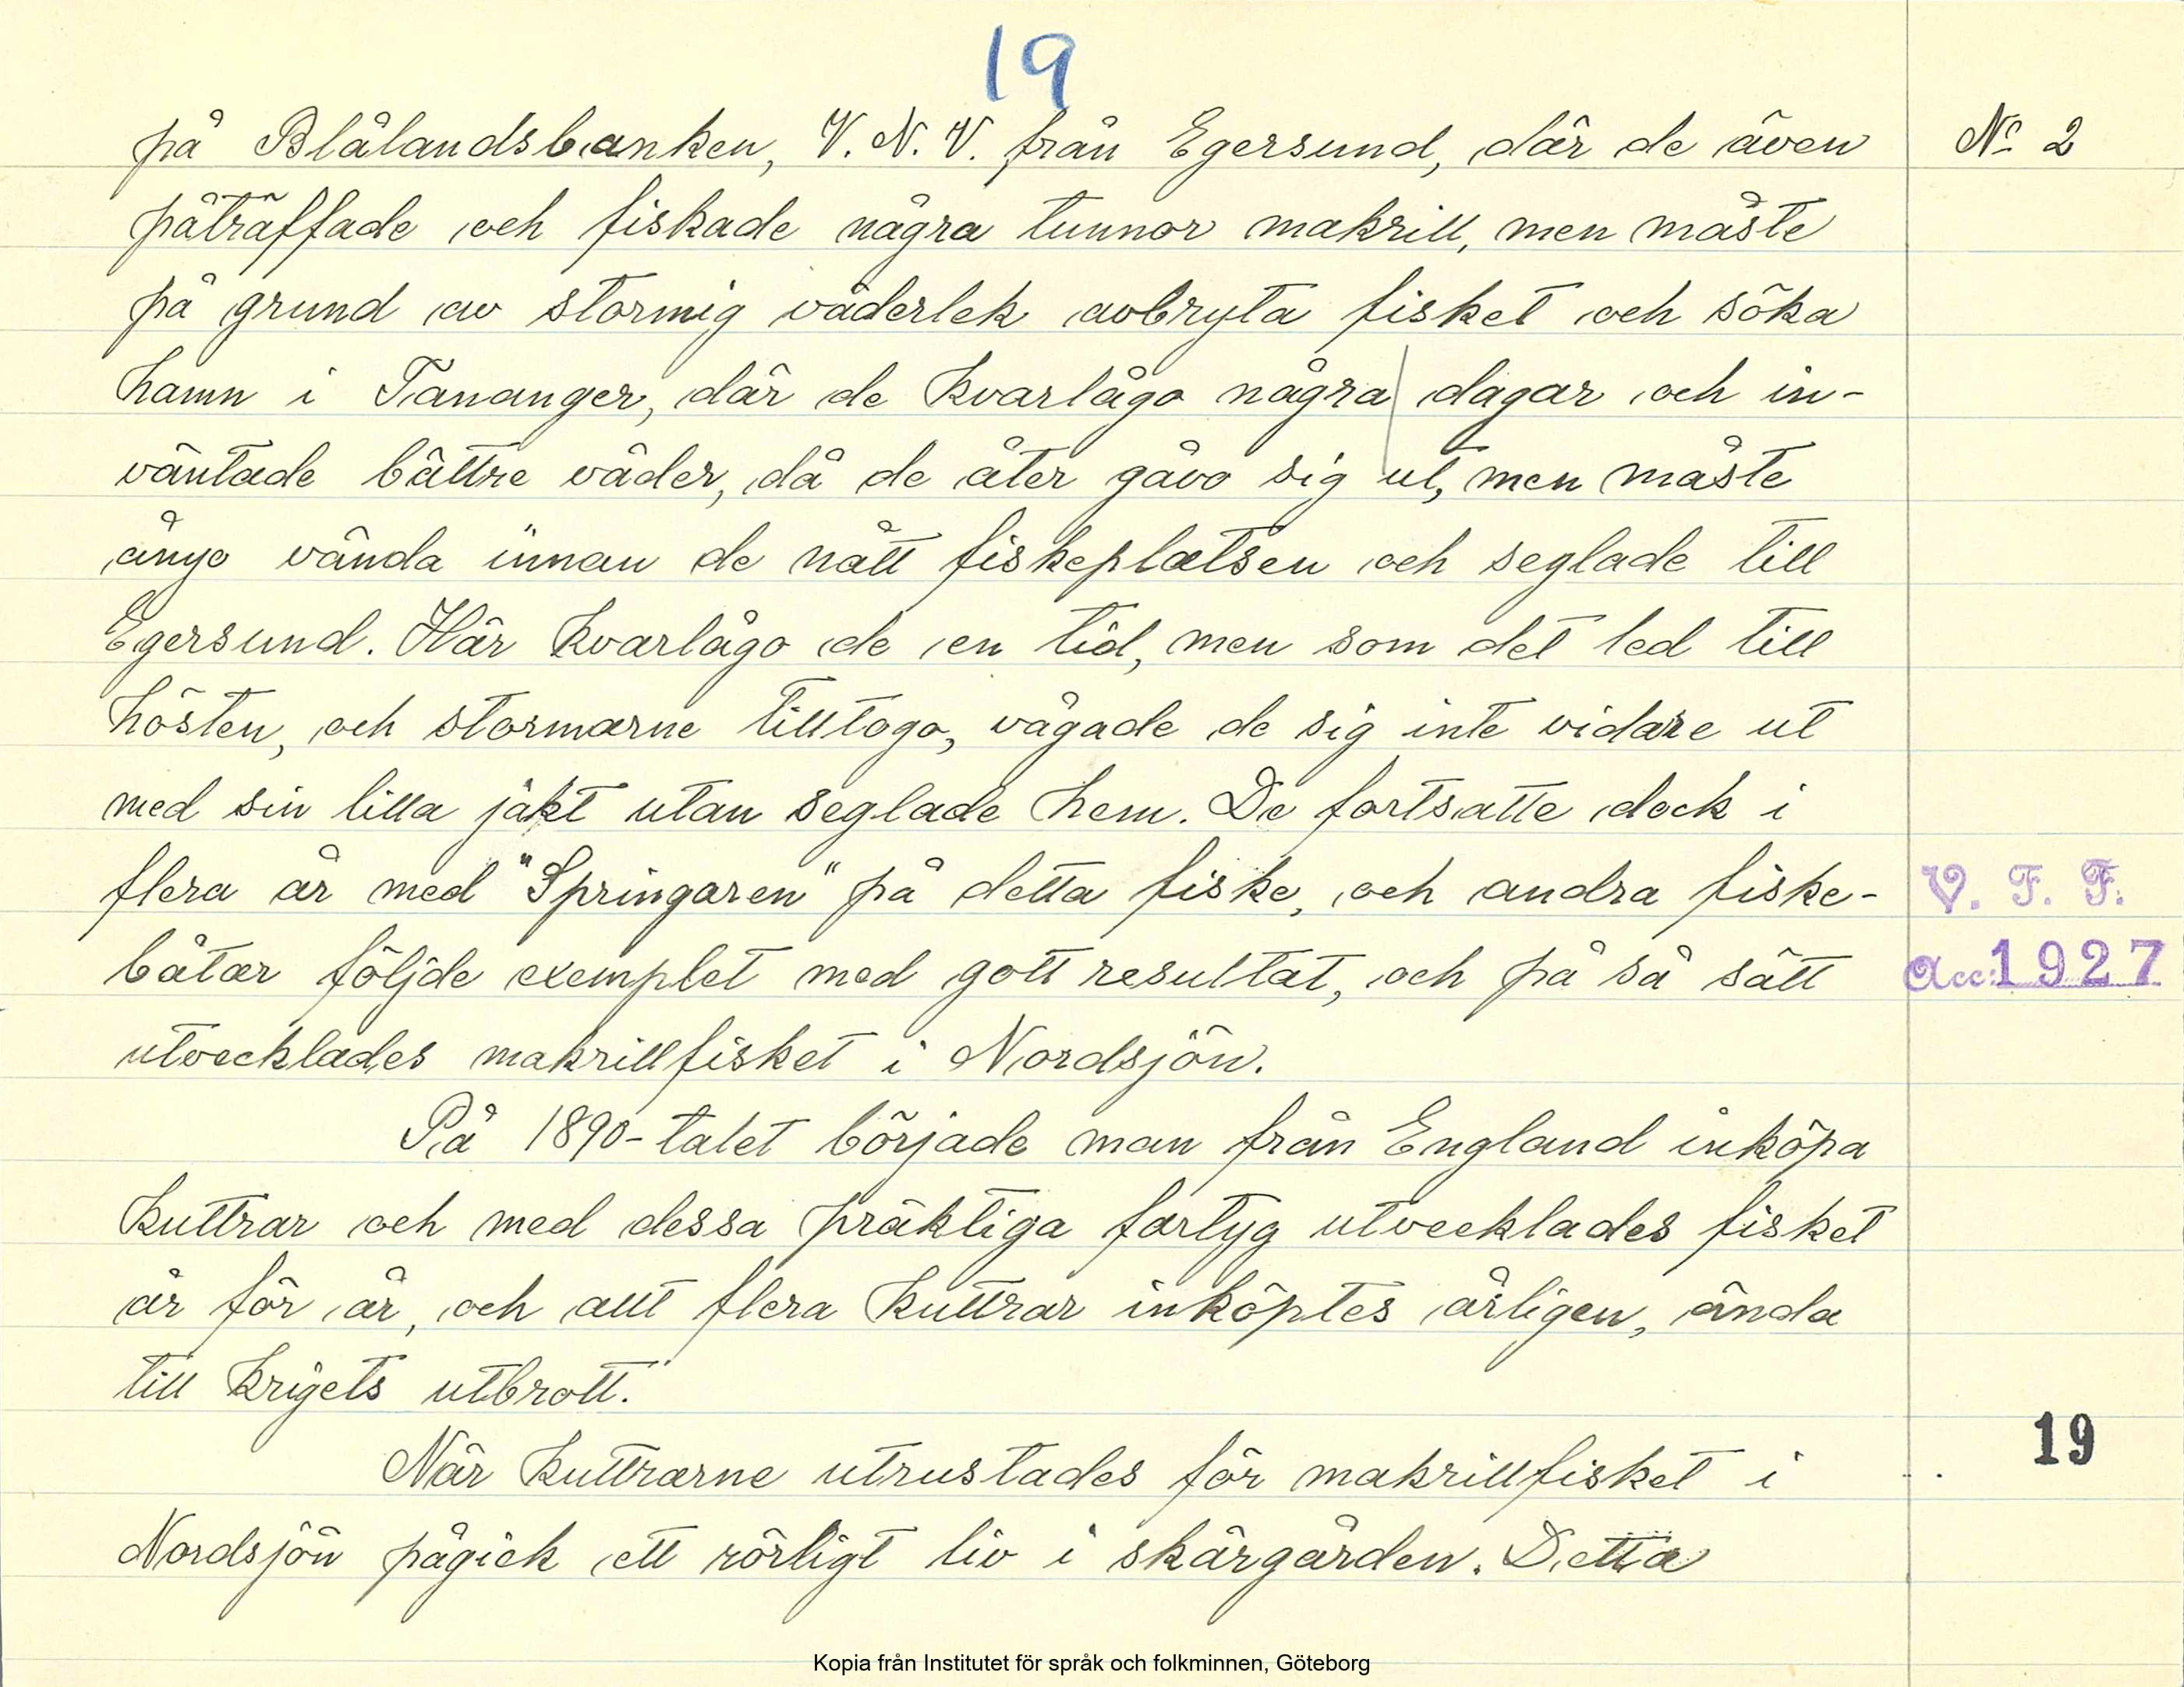 19
på Blålandsbanken, V. N. V. från Egersund, där de även
Nº 2
påträffade och fiskade några tunnor makrill, men måste
på grund av stormig väderlek avbryta fisket och söka
hamn i Tananger, där de kvarlågo några dagar och in-
väntade bättre väder, då de åter gåvo sig ut, men måste
ånyo vända innan de nått fiskeplatsen och seglade till
Egersund. Här kvarlågo de en tid, men som det led till
hösten, och stormarne tilltogo, vågade de sig inte vidare ut
med sin lilla jakt utan seglade hem. De fortsatte dock i
flera år med "Springaren" på detta fiske, och andra fiske-
V. F. F.
båtar följde exemplet med gott resultat, och på så sätt
Acc: 1927
utvecklades makrillfisket i Nordsjön.
På 1890-talet började man från England inköpa
kuttrar och med dessa präktiga fartyg utvecklades fisket
år för år, och allt flera kuttrar inköptes årligen, ända
till krigets utbrott.
När kuttrarne utrustades för makrillfisket i
19
Nordsjön pågick ett rörligt liv i skärgården. Detta
Kopia från Institutet för språk och folkminnen, Göteborg